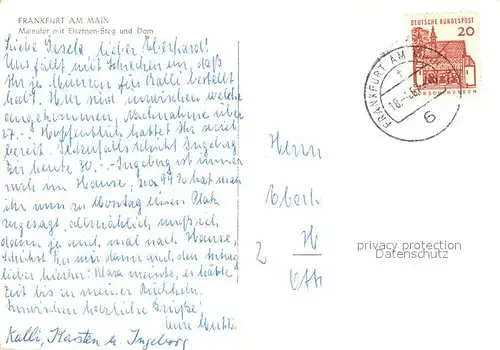 FRANKFURT AM MAIN
Mainufer mit Eisernen-Steg und Dom
Liebe Gisela, lieber Eberhard!
Uns fällt mit Schrecken ein, daß
Ihr ja Münzen für Kalli bestellt
habt. Hier sind inzwischen welche
angekommen, Nachnahme über
27.-. Hoffentlich hattet Ihr
bereit. Jedenfalls schickt Ingeborg
Dir heute 30.-. Ingeborg ist immer
noch im Hause, zu 99% hat man
ihr nun zu Montag einen Platz
zugesagt, allmählich muß ich
dann ja auch mal nach Hause,
schickst Du mir dann auch den
lieber hierher? Klara meinte, er hätte
Zeit bis zu meiner Rückkehr.
Inzwischen herzliche Grüße!
Eure
Kalli, Karsten u. Ingeborg
DEUTSCHE BUNDESPOST
20
FRANKFURT AM MAIN
18.
6
Herrn
2
privacy protection
Datenschutz